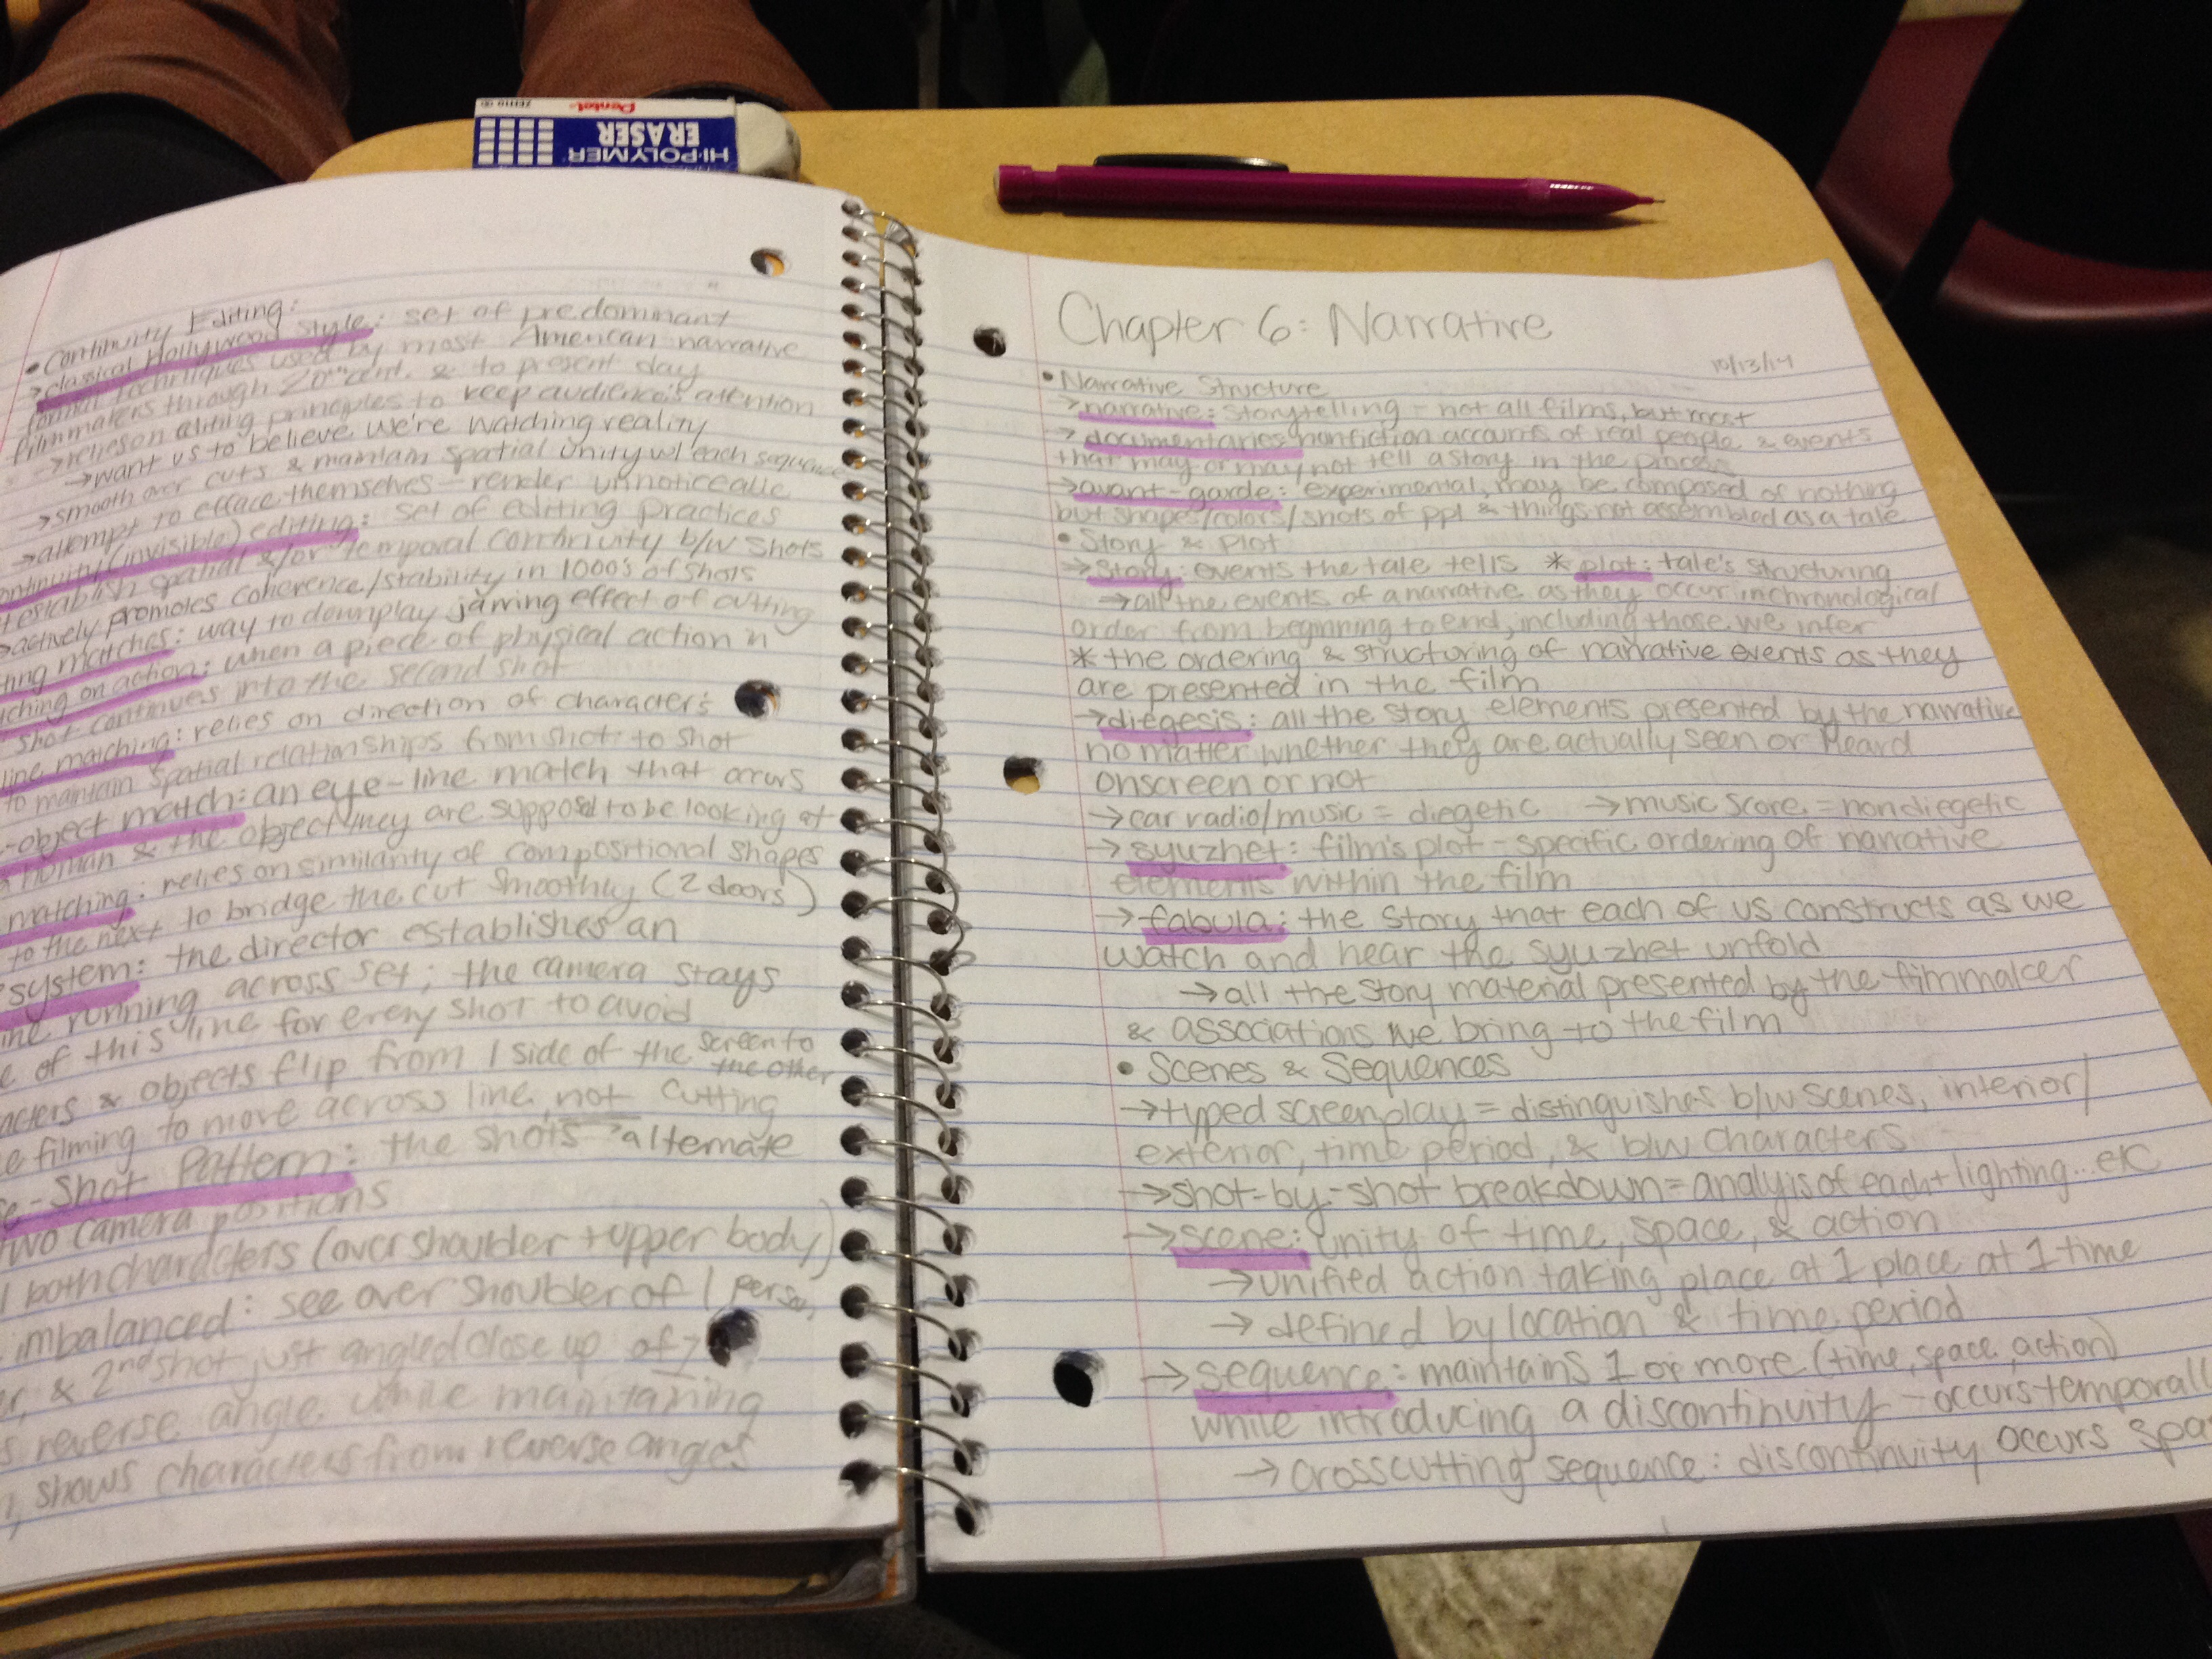 Pentel
HI-POLYMER
ERASER
• Continuity Editing:
→classical Hollywood style: set of predominant
formal techniques used by most American narrative
filmmakers through 20th cent. & to present day
→relies on editing principles to keep audience's attention
→want us to believe we're watching reality
→smooth over cuts & maintain spatial unity w/ each sequence
→attempt to efface themselves - render unnoticeable
continuity (invisible) editing: set of editing practices
establish spatial &/or temporal continuity b/w shots
→actively promotes coherence/stability in 1000's of shots
ting matches: way to downplay jarring effect of cutting
ching on action: when a piece of physical action in
shot continues into the second shot
line matching: relies on direction of character's
to maintain spatial relationships from shot to shot
-object match: an eye-line match that occurs
human & the object they are supposed to be looking at
matching: relies on similarity of compositional shapes
to the next to bridge the cut smoothly (2 doors)
system: the director establishes an
running across set; the camera stays
of this line for every shot to avoid
acters & objects flip from 1 side of the screen to the other
filming to move across line, not cutting
e-Shot Pattern: the shots → alternate
two camera positions
both characters (over shoulder + upper body)
imbalanced: see over shoulder of 1 person,
& 2nd shot just angled close up of
reverse angle while maintaining
shows characters from reverse angles
Chapter 6: Narrative
10/13/14
• Narrative Structure
→narrative: storytelling - not all films, but most
→documentaries: nonfiction accounts of real people & events
that may or may not tell a story in the process
→avant-garde: experimental, may be composed of nothing
but shapes/colors/shots of ppl & things not assembled as a tale
• Story & Plot
→Story: events the tale tells * plot: tale's structuring
→all the events of a narrative as they occur in chronological
order from beginning to end, including those we infer
* the ordering & structuring of narrative events as they
are presented in the film
→diegesis: all the story elements presented by the narrative
no matter whether they are actually seen or heard
onscreen or not
→car radio/music = diegetic →music score = nondiegetic
→syuzhet: film's plot - specific ordering of narrative
elements within the film
→fabula: the story that each of us constructs as we
watch and hear the syuzhet unfold
→all the story material presented by the filmmaker
& associations we bring to the film
• Scenes & Sequences
→typed screenplay = distinguishes b/w scenes, interior/
exterior, time period, & b/w characters
→shot-by-shot breakdown = analyis of each + lighting...etc
→scene: unity of time, space, & action
→unified action taking place at 1 place at 1 time
→defined by location & time period
→sequence: maintains 1 or more (time, space, action)
while introducing a discontinuity - occurs temporall
→crosscutting sequence: discontinuity occurs spa